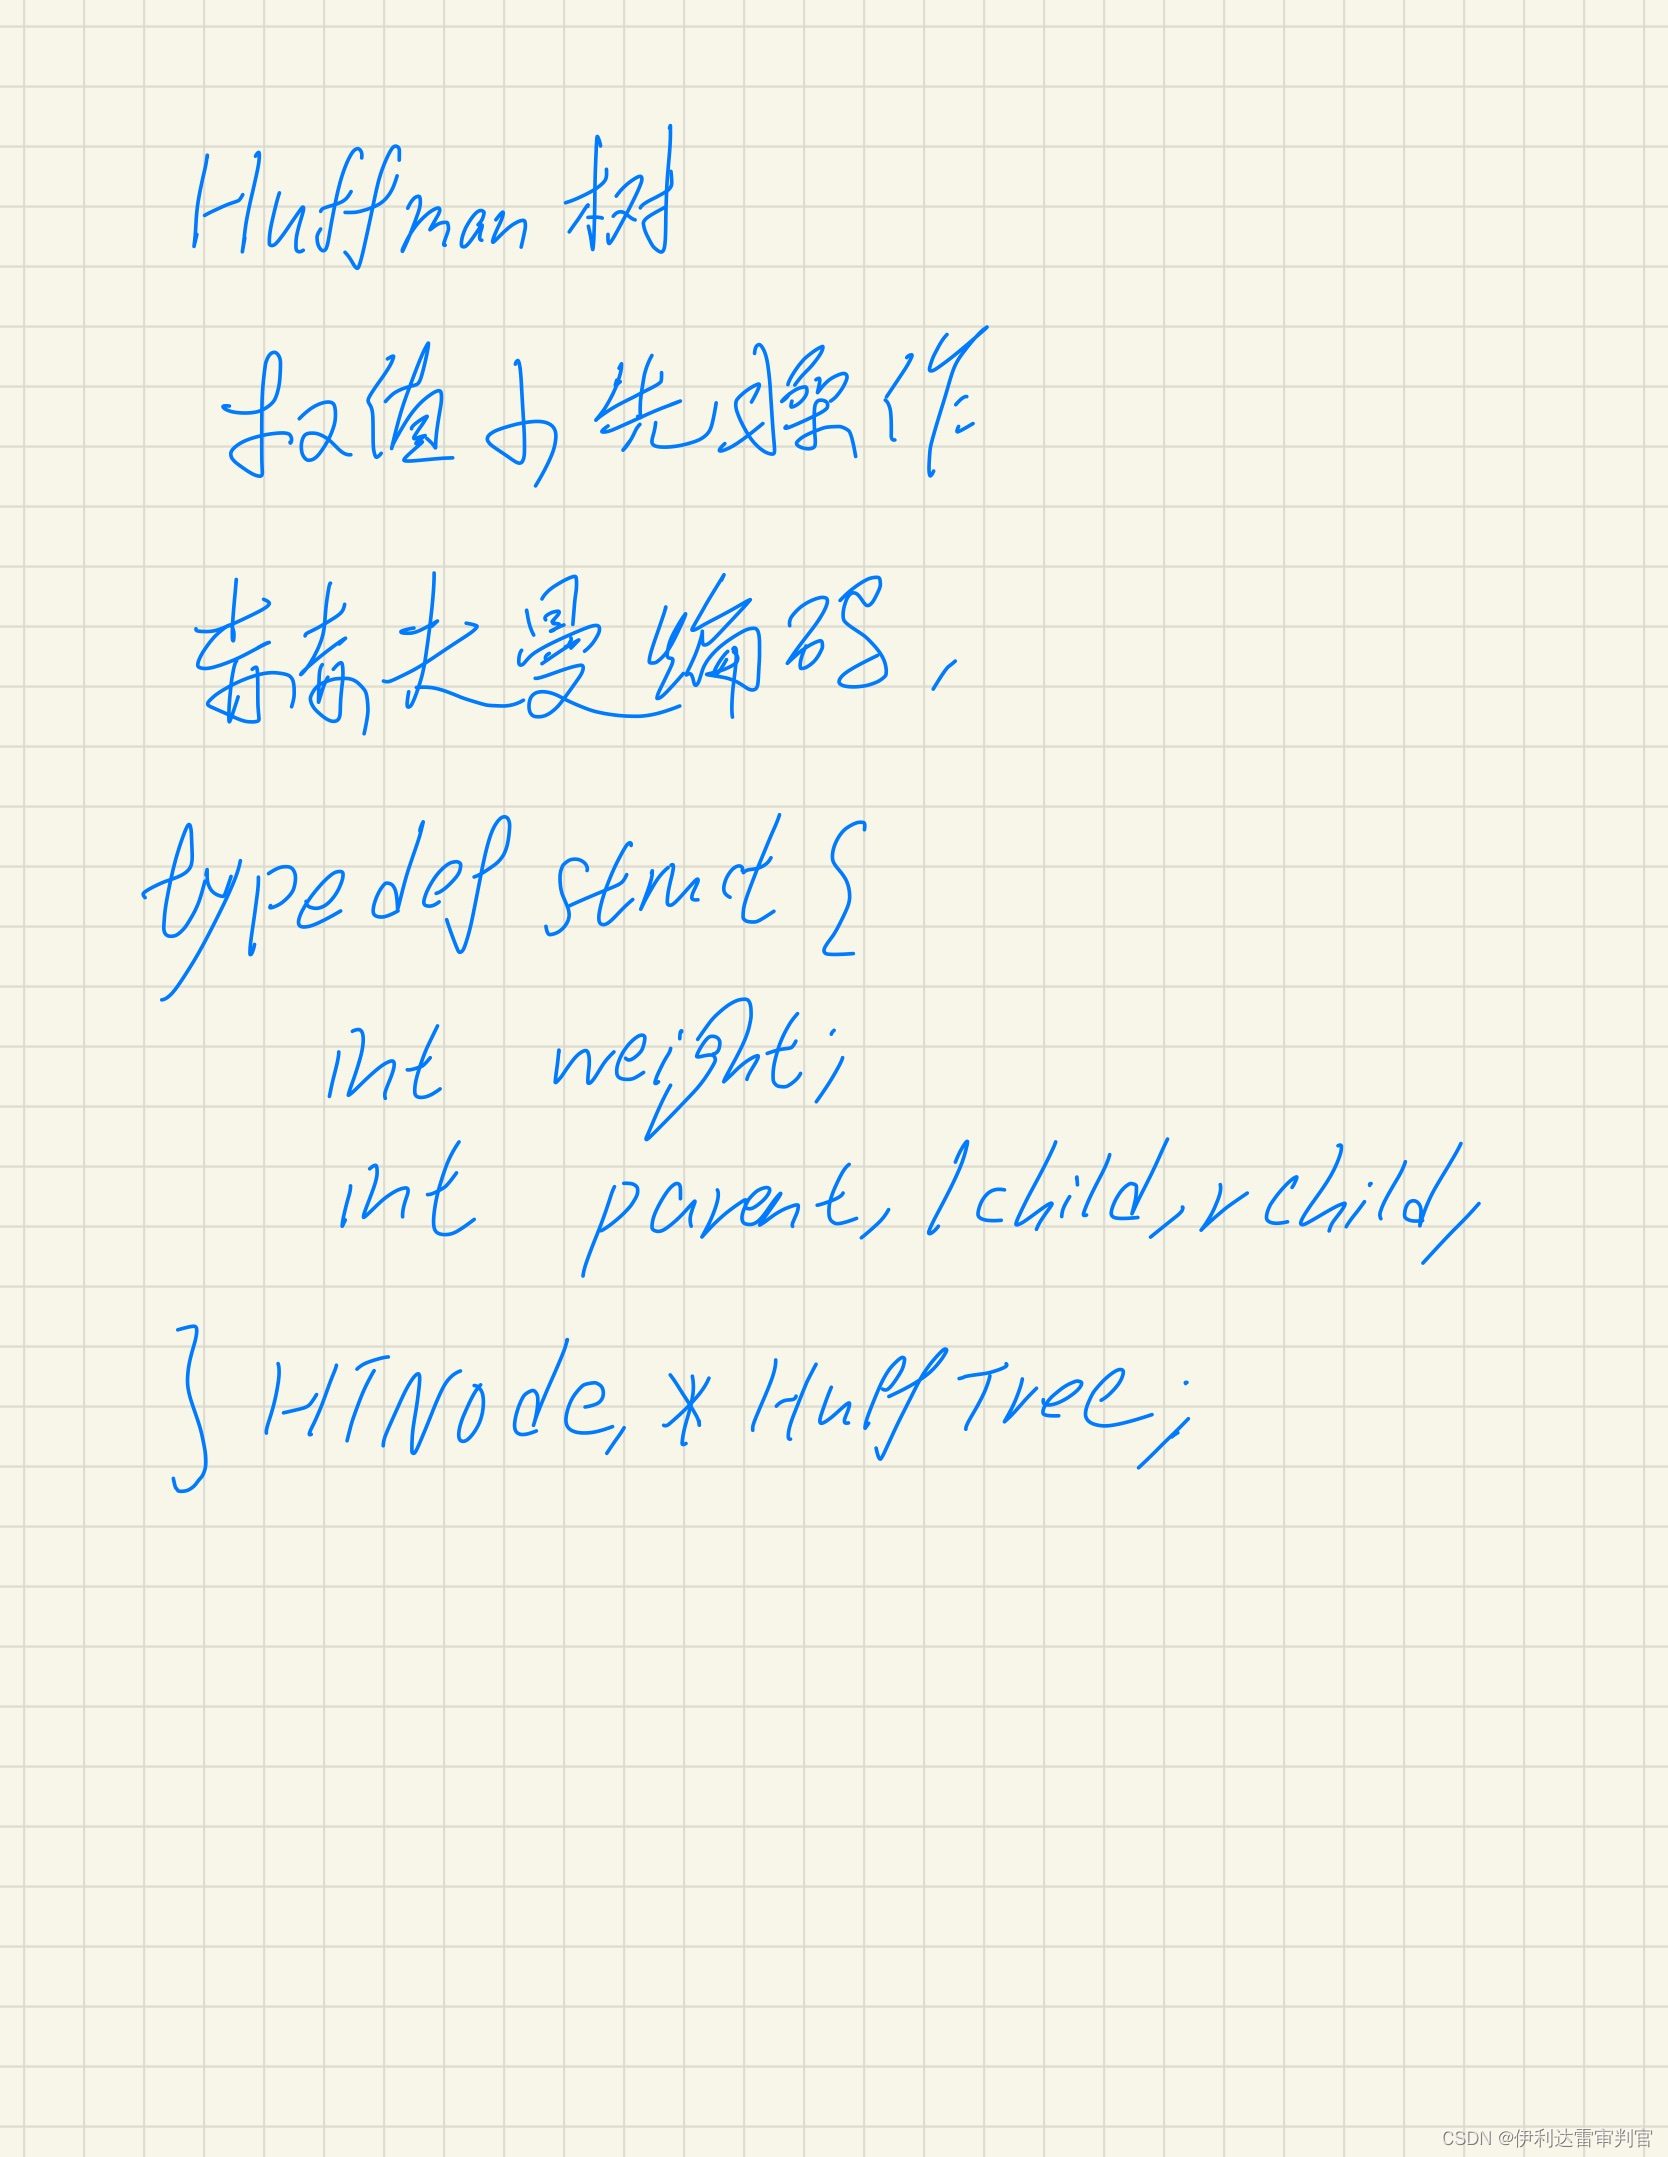 Huffman 树
权值小先操作
赫赫夫曼编码,
typedef struct {
int weight;
int parent, lchild, rchild,
} HTNode, * HuffTree;
CSDN @伊利达雷审判官